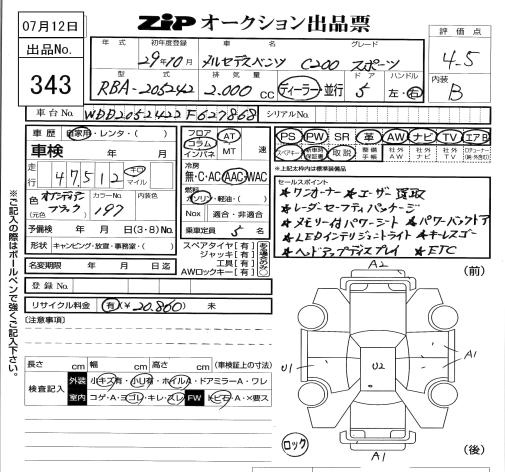 07月12日
出品No.
343
ZIP オークション出品票
評価点
4-5
内装
B
年式 初年度登録 車名 グレード
29年10月 メルセデスベンツ C200 スポーツ
型式 排気量 ドア ハンドル
RBA-205242 2.000 CC ディーラー・並行 5 左・右
車台No. WDD2052422F627868 シリアルNo.
車歴 自家用・レンタ・( )
車検 年 月
走行 47,512 キロ マイル
色 オブシディアンブラック (元色) カラーNo. 197 内装色
予備検 年 月 日(3・8)No.
形状 キャンピング・放宣・事務室・( )
名変期限 年 月 日迄
登録No.
リサイクル料金 有(¥20.860) 未
フロア コラム インパネ AT MT 速
冷房 無・C・AC AAC・WAC
燃料 ガソリン・軽油・( )
Nox 適合・非適合
乗車定員 5 名
スペアタイヤ【有】
ジャッキ【有】
工具【有】
AWロックキー【有】
PS PW SR 革 AW ナビ TV エアB
スペアキー 新車時保証書 取説 整備手帳 社外AW 社外ナビ 社外TV
※上記太枠内は標準装備品
セールスポイント
★ワンオーナー ★ユーザー買取
★レーダーセーフティパッケージ
★メモリー付パワーシート ★パワーバックドア
★LEDインテリジェントライト ★キーレスゴー
★ヘッドアップディスプレイ ★ETC
※ご記入の際はボールペンで強くご記入下さい。
[注意事項]
長さ cm 幅 cm 高さ cm (車検証上の寸法)
検査記入
外装 小キズ有・小U有・ホイルA・ドアミラーA・ワレ
室内 コゲ・A・ヨゴレ・キレ・スレ FW トビ石・A・×要ス
A2
(前)
A1
U1
U2
ロック
A1
(後)